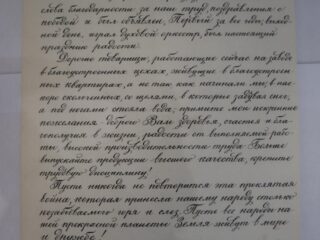 слова благодарности за наш труд, поздравления с
победой и был объявлен, Первый за все годы, выход-
ной день, играл духовой оркестр, был настоящий
праздник радости.
Дорогие товарищи, работающие сейчас на заводе
в благоустроенных цехах, живущие в благоустроен
ных квартирах, а не так как начинали мы, в нас
коро сколоченных, со щелями, в которые задувал снег,
а под ногами стояла вода, примите мои искренние
пожелания доброго Вам здоровья, счастья и бла-
гополучия в жизни, радости от выполняемой рабо-
ты, высокой производительности труда. Больше
выпускайте продукции высшего качества, крепите
трудовую дисциплину!
Пусть никогда не повторится эта проклятая
война, которая принесла нашему народу столько
незабываемого горя и слез. Пусть все народы на-
шей прекрасной планеты Земля живут в мире
и дружбе!